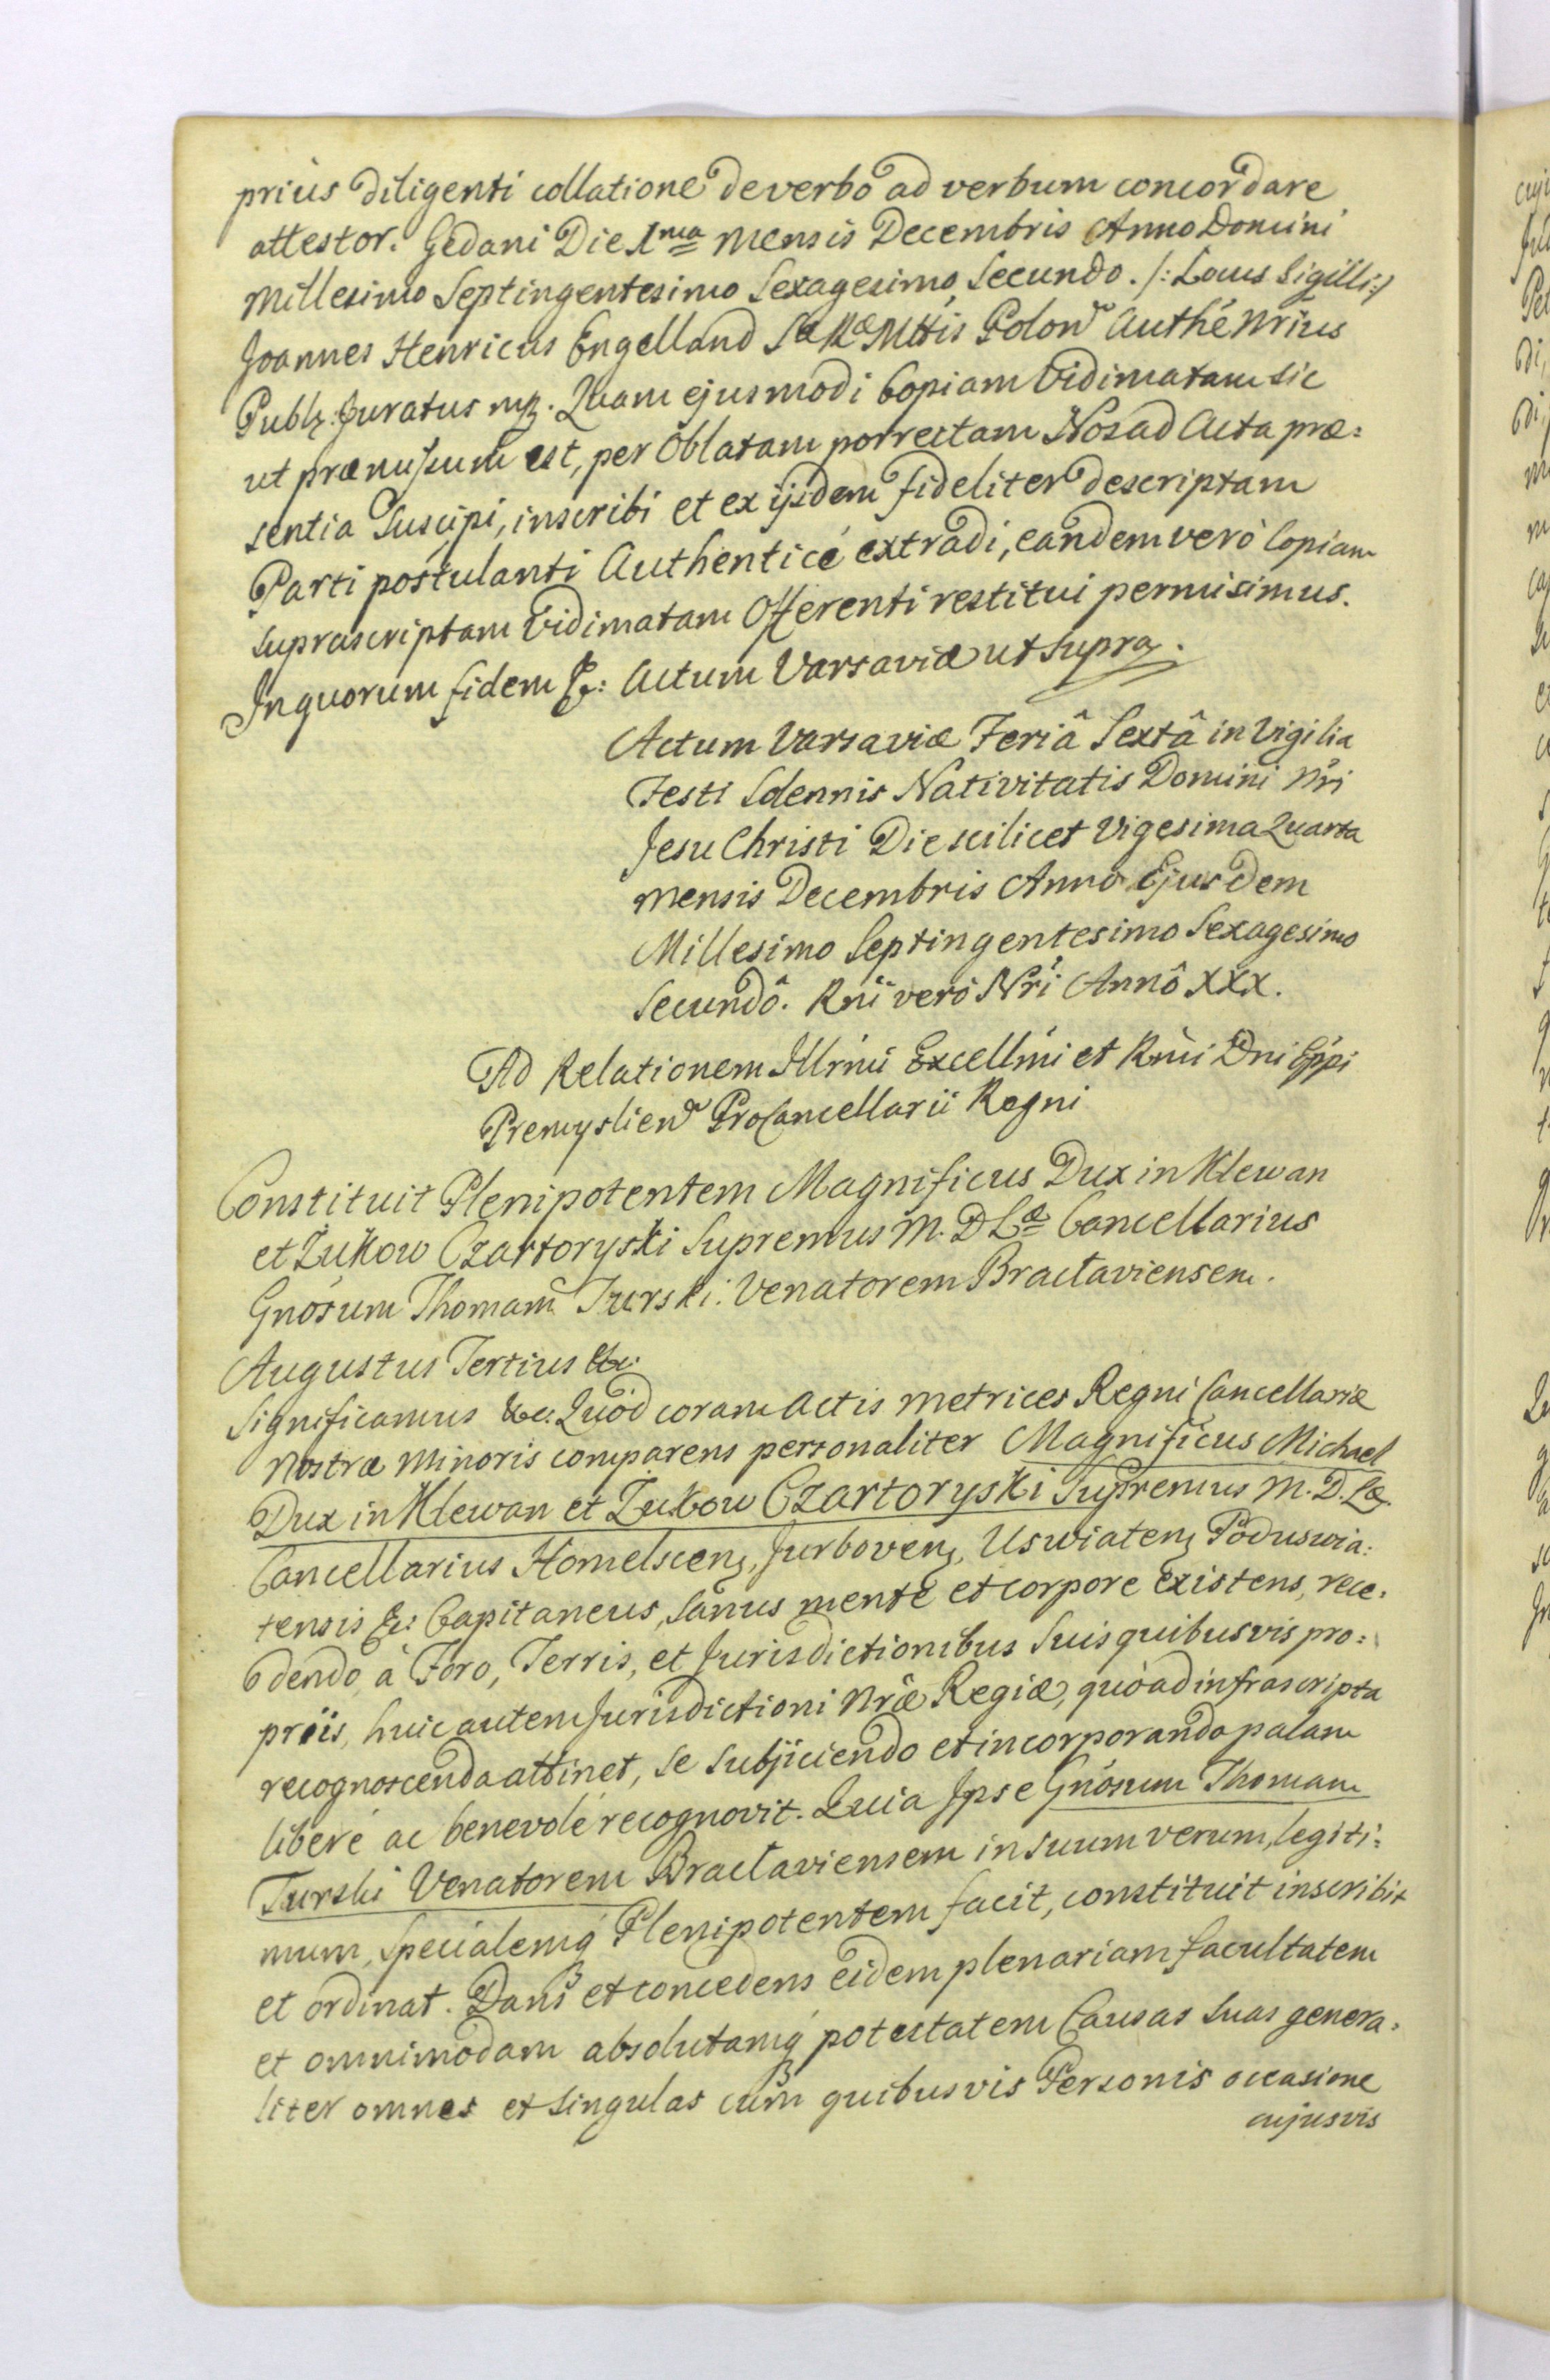 prius diligenti collatione de verbo ad verbum concordare
attestor. Gedani Die 1ma Mensis Decembris Anno Domini
Millesimo Septingentesimo Sexagesimo Secundo. /: Locus Sigilli:/
Joannes Henricus Engelland Sæ Ræ Mttis Polon Authē Nrius
Publz: Juratus mpz. Quam ejusmodi Copiam Vidimatam sic
ut præmissum est, per Oblatam porrectam Nos ad Acta præ:
sentia Suscipi, inscribi et ex ijsdem fideliter descriptam
Parti postulanti Authenticé extradi, eandem verò Copiam
suprascriptam Vidimatam Offerenti restitui permisimus.
In quorum fidem &: Actum Varsaviæ ut supra.
Actum Varsaviæ Feriâ Sextâ in Vigilia
Festi Solennis Nativitatis Domini Nri
Jesu Christi Die scilicet Vigesima Quarta
Mensis Decembris Anno Ejusdem
Millesimo Septingentesimo Sexagesimo
Secundô. Rni verò Nri Annô XXX.
Ad Relationem Illrmi Excellmi et Rmi Dni Eppi
Premyslien ProCancellarii Regni
Constituit Plenipotentem Magnificus Dux in Klewan
et Zukow Czartoryski Supremus M. D Læ Cancellarius
Gnosum Thomam Turski. Venatorem Braclaviensem.
Augustus Tertius &c.
Significamus &c. Quod coram Actis Metrices Regni Cancellariæ
Nostræ Minoris comparens personaliter Magnificus Michael
Dux in Klewan et Zukow Czartoryski Supremus M. D. Læ.
Cancellarius Homelscenz, Jurbovenz, Uswiatenz Poduswia:
tensis &: Capitaneus, Sanus mente et corpore existens, rece:
dendo à Foro, Terris, et Jurisdictionibus Suis quibusvis pro:
priis, huic autem Jurisdictioni Nræ Regiæ, quò ad infrascripta
recognoscenda attinet, se subjiciendo et incorporando palam
liberé ac benevolé recognovit. Quia Ipse Gnosum Thomam
Turski Venatorem Braclaviensem in suum verum, legiti:
mum, Specialemq Plenipotentem facit, constituit inscribit
et ordinat. Dans et concedens eidem plenariam facultatem
et omnimodam absolutamq potestatem Causas Suas genera:
liter omnes et singulas cum quibusvis Personis occasione
cujusvis